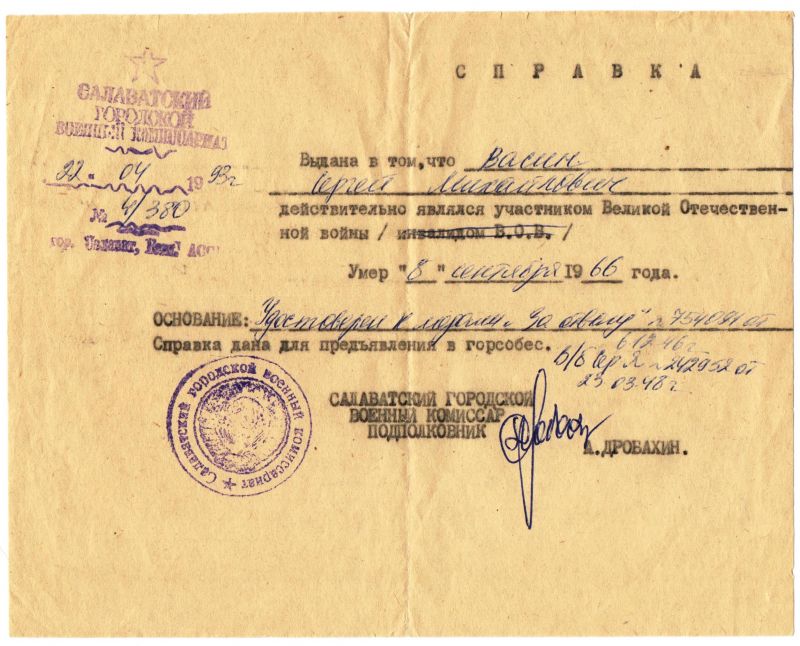 САЛАВАТСКИЙ
ГОРОДСКОЙ
ВОЕННЫЙ КОМИССАРИАТ
22 04 1993г
№ 4/380
гор. Салават, АСС
СПРАВКА
Выдана в том,что Васин
Сергей Михайлович
действительно являлся участником Великой Отечествен-
ной войны / инвалидом В.О.В. /
Умер "8" сентября 1966 года.
ОСНОВАНИЕ: Удостоверен к медали "За отвагу" № 754091 от
6 12.46г
Справка дана для предъявления в горсобес.
В/б сер Я № 242952 от
23.03.48г
САЛАВАТСКИЙ ГОРОДСКОЙ
ВОЕННЫЙ КОМИССАР
ПОДПОЛКОВНИК
А.ДРОБАХИН.
Салаватский городской военный комиссариат